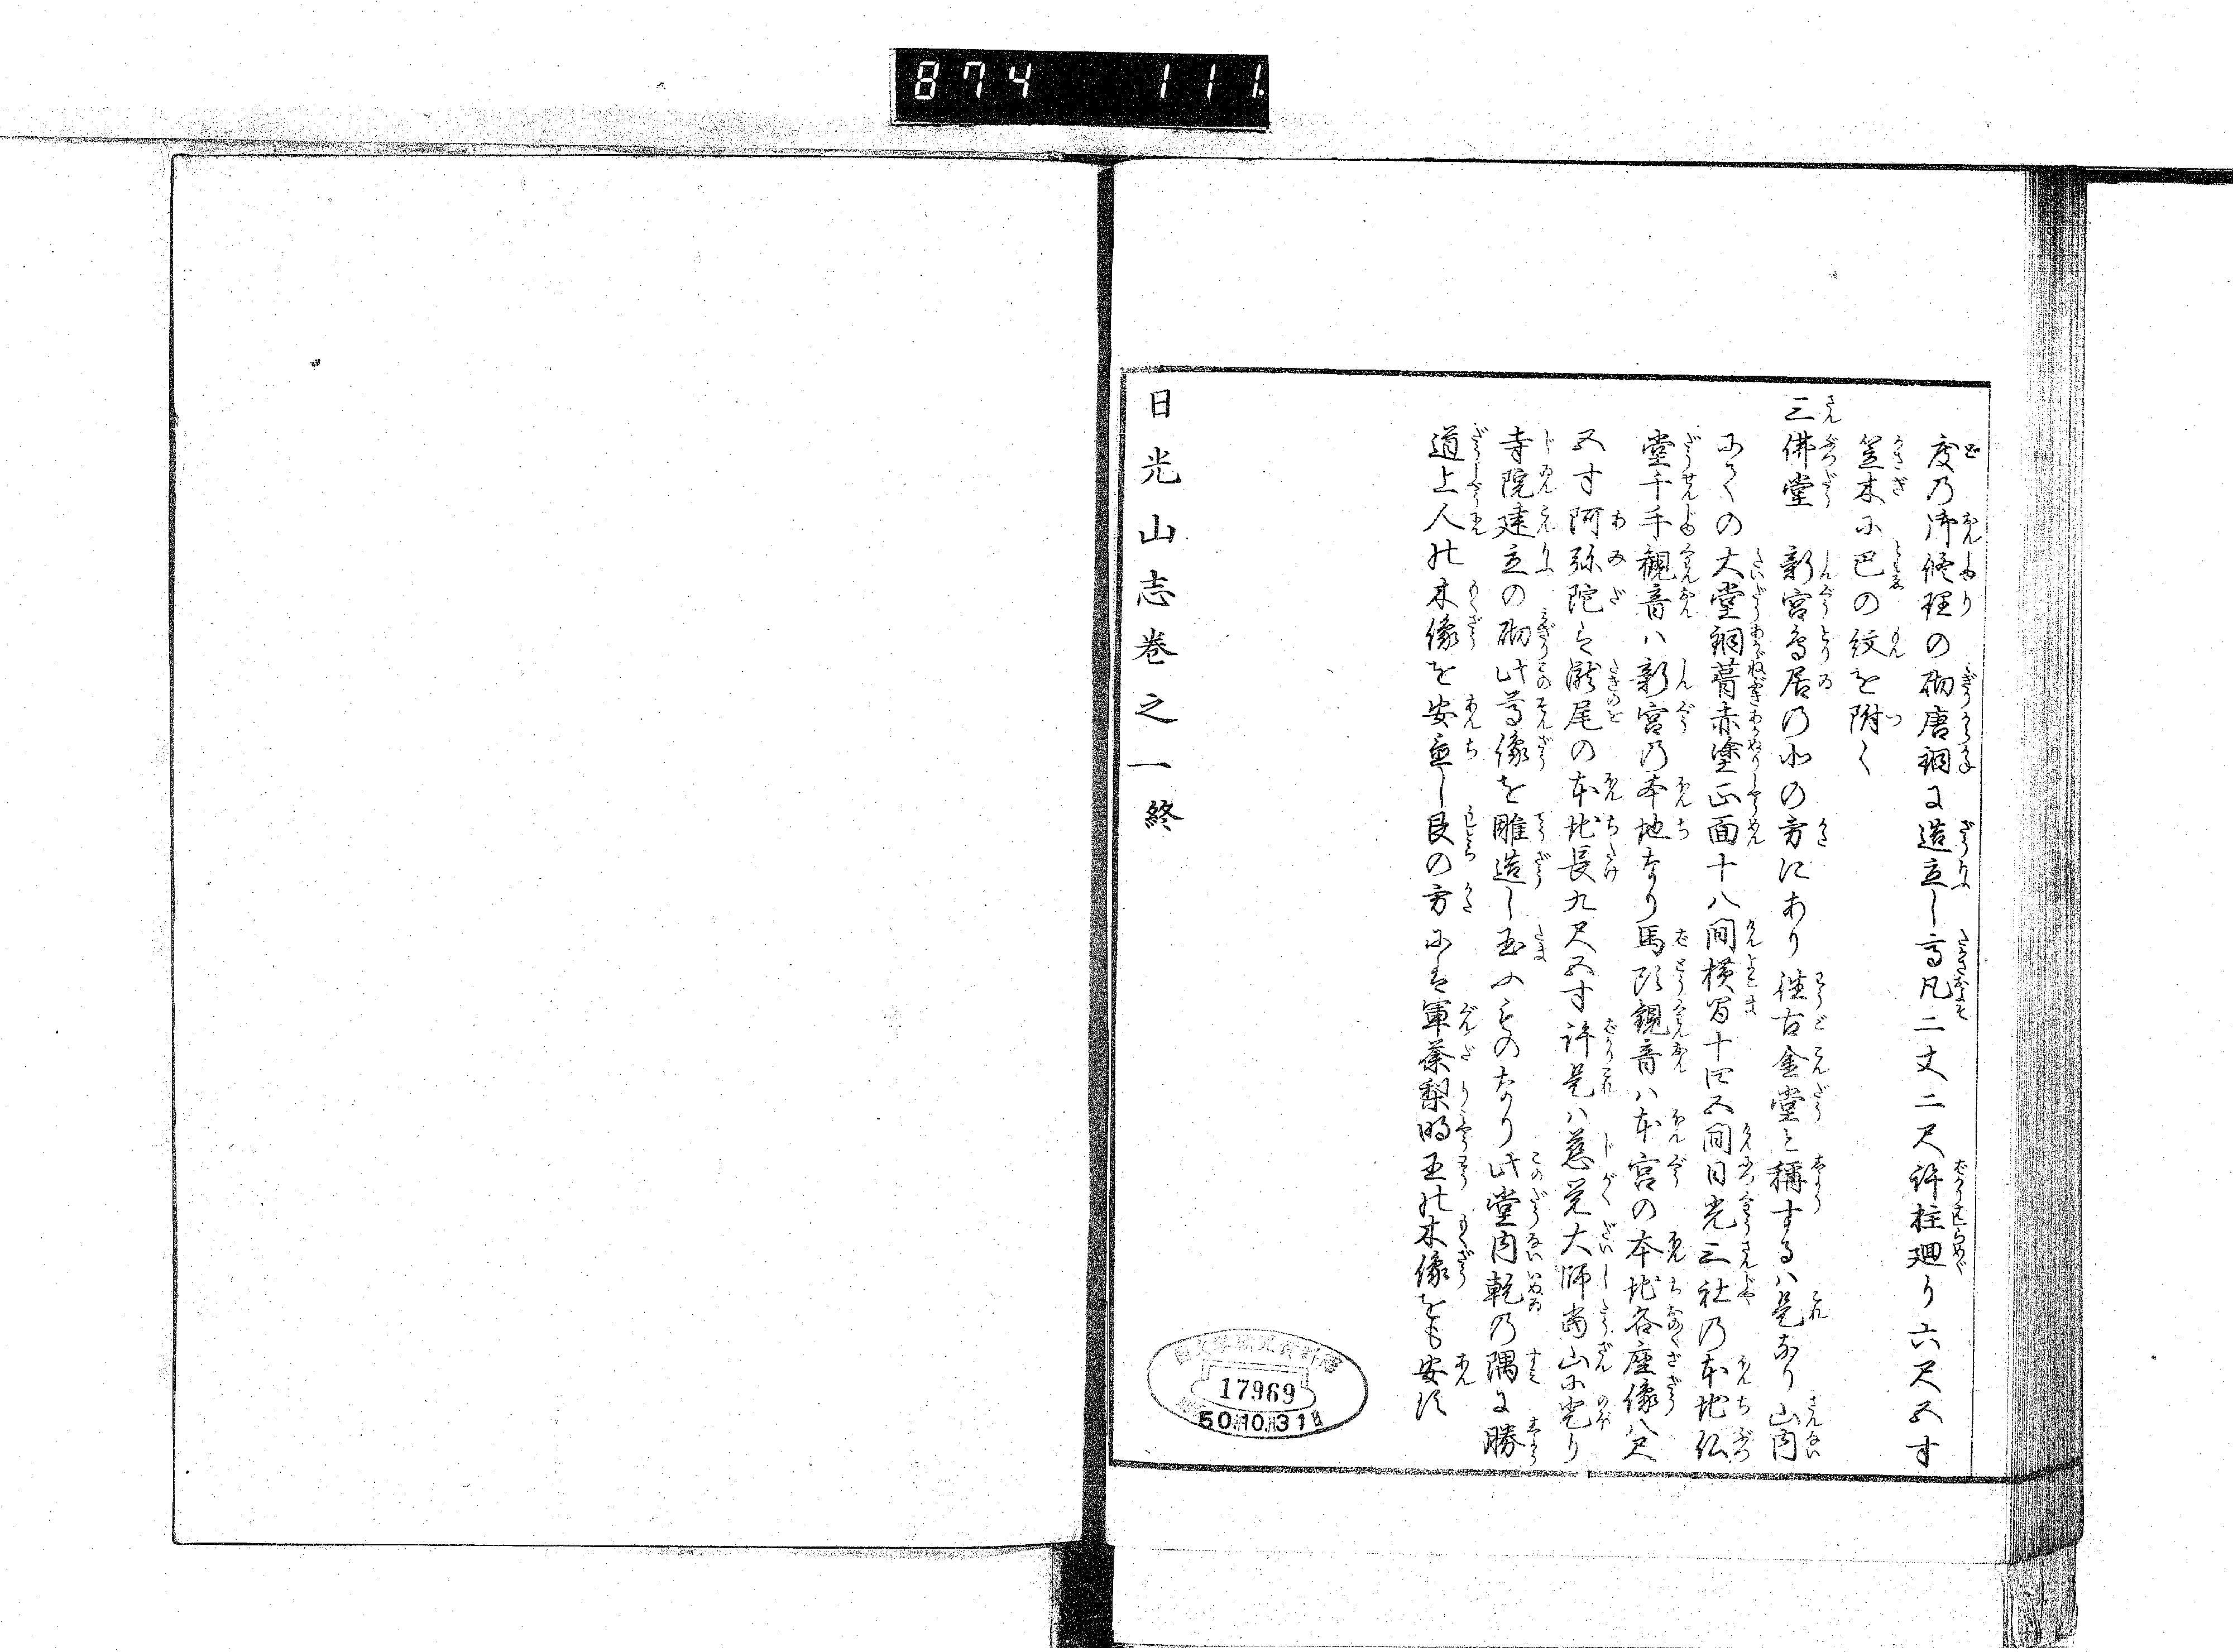 874 111.
度乃御修理の砌唐銅に造立し高凡二丈二尺許柱廻り六尺五寸
笠木に巴の紋を附く
三佛堂 新宮鳥居乃北の方にあり徃古金堂と稱するハ是なり山内
にての大堂銅葺赤塗正面十八間横間十四五間日光三社乃本地仏
堂千手觀音ハ新宮乃本地なり馬頭觀音ハ本宮の本地各座像八尺
五寸阿弥陀は瀧尾の本地長九尺五寸許是ハ慈覚大師当山に登り
寺院建立の砌此尊像を雕造し玉ふものなり此堂内乾乃隅に勝
道上人の木像を安置し艮の方には軍荼梨明王の木像をも安す
日光山志巻之一終
国文学研究資料館
17969
50.10.31